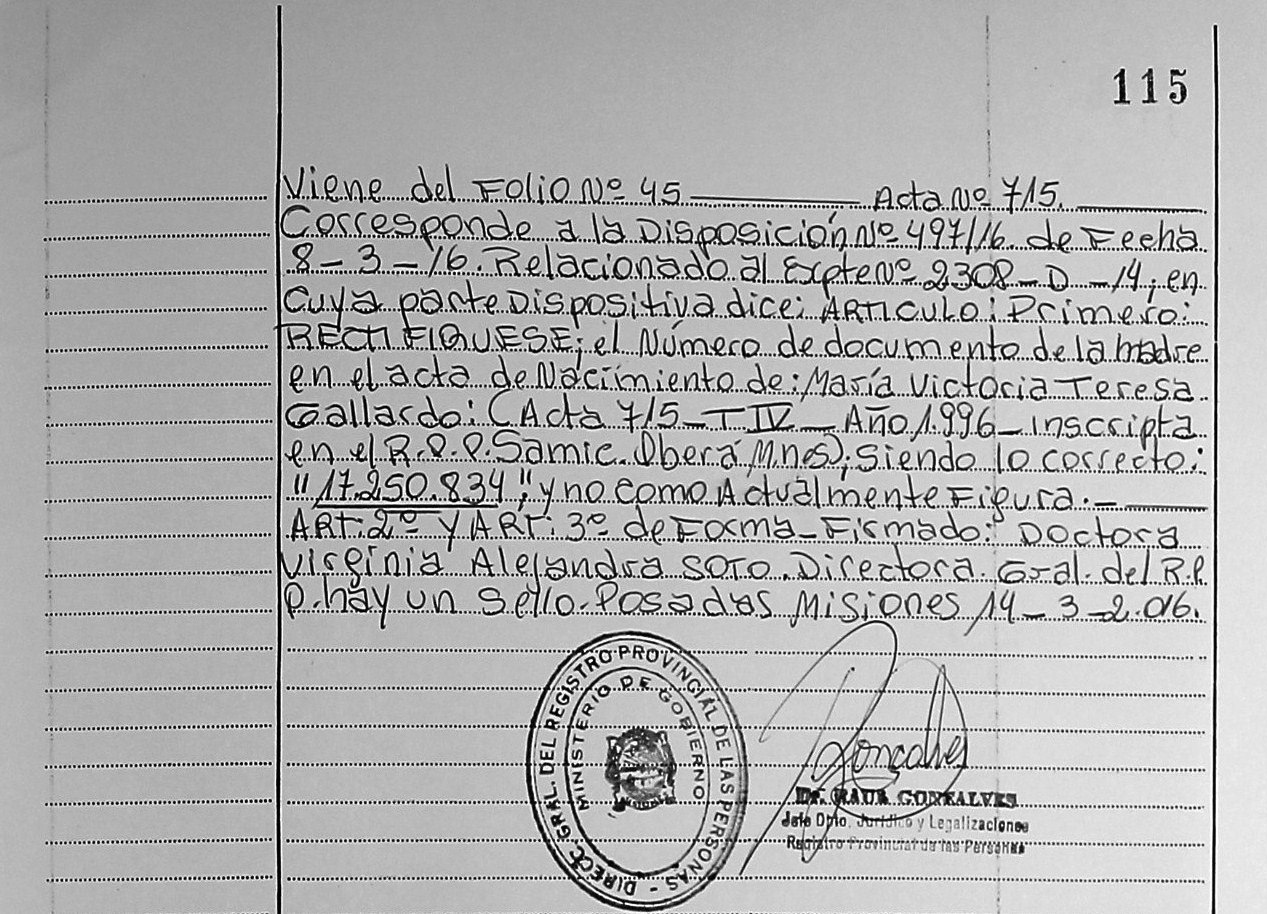 115
Viene del Folio Nº 45 Acta Nº 715.
Corresponde a la Disposición Nº 497/16 de Fecha
8-3-16. Relacionado al Expte Nº 2308-D-14; en
cuya parte Dispositiva dice: ARTICULO: Primero:
RECTIFIQUESE; el Número de documento de la madre
en el acta de Nacimiento de: María Victoria Teresa
Gallardo: (Acta 715-T IV- Año 1.996- inscripta
en el R.P.P. Samic. Oberá Mnes); siendo lo correcto:
"17.250.834" y no como Actualmente Figura.-
ART: 2º Y ART: 3º de Forma- Firmado: Doctora
Virginia Alejandra SOTO. Directora Gral. del R.P.
P. hay un sello. Posadas Misiones 14-3-2.016.
DIRECC. GRAL. DEL REGISTRO PROVINCIAL DE LAS PERSONAS -
MINISTERIO DE GOBIERNO
Goncalves
Dr. RAUL GONCALVES
Jefe Dpto. Jurídico y Legalizaciones
Registro Provincial de las Personas